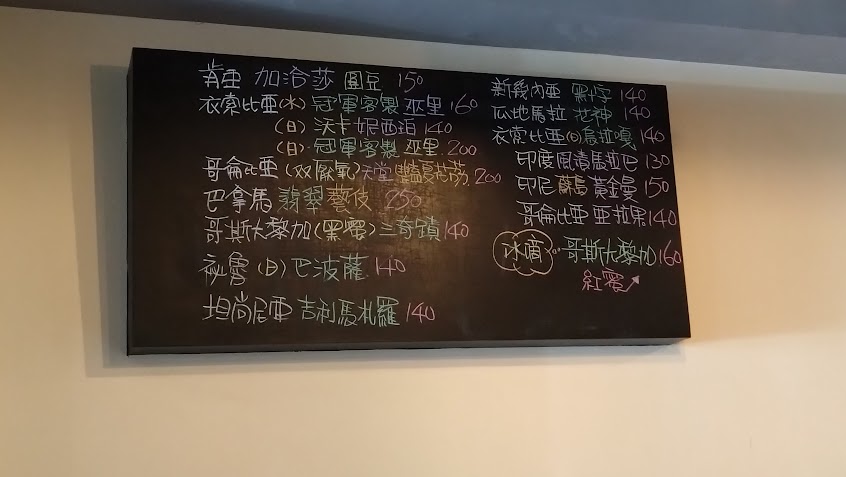 肯亞 加洽莎 圓豆 150
衣索比亞(水) 冠軍客製 巫里 160
(日) 沃卡 妮西珀 140
(日) 冠軍客製 巫里 200
哥倫比亞 (双厭氧) 天堂 200
巴拿馬 翡翠藝伎 250
哥斯大黎加 (黑蜜) 三奇蹟 140
祕魯 (日) 巴波薩 140
坦尚尼亞 吉利馬札羅 140
新幾內亞 黑十字 140
瓜地馬拉 花神 140
衣索比亞(日) 烏拉嘎 140
印度風漬馬拉巴 130
印尼 蘇島 黃金曼 150
哥倫比亞 亞拉果 140
冰滴 哥斯大黎加 160
紅蜜